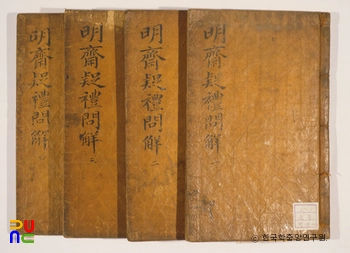 明齋疑禮問解
明齋疑禮問解
明齋疑禮問解 二
明齋疑禮問解
© 한국학중앙연구원